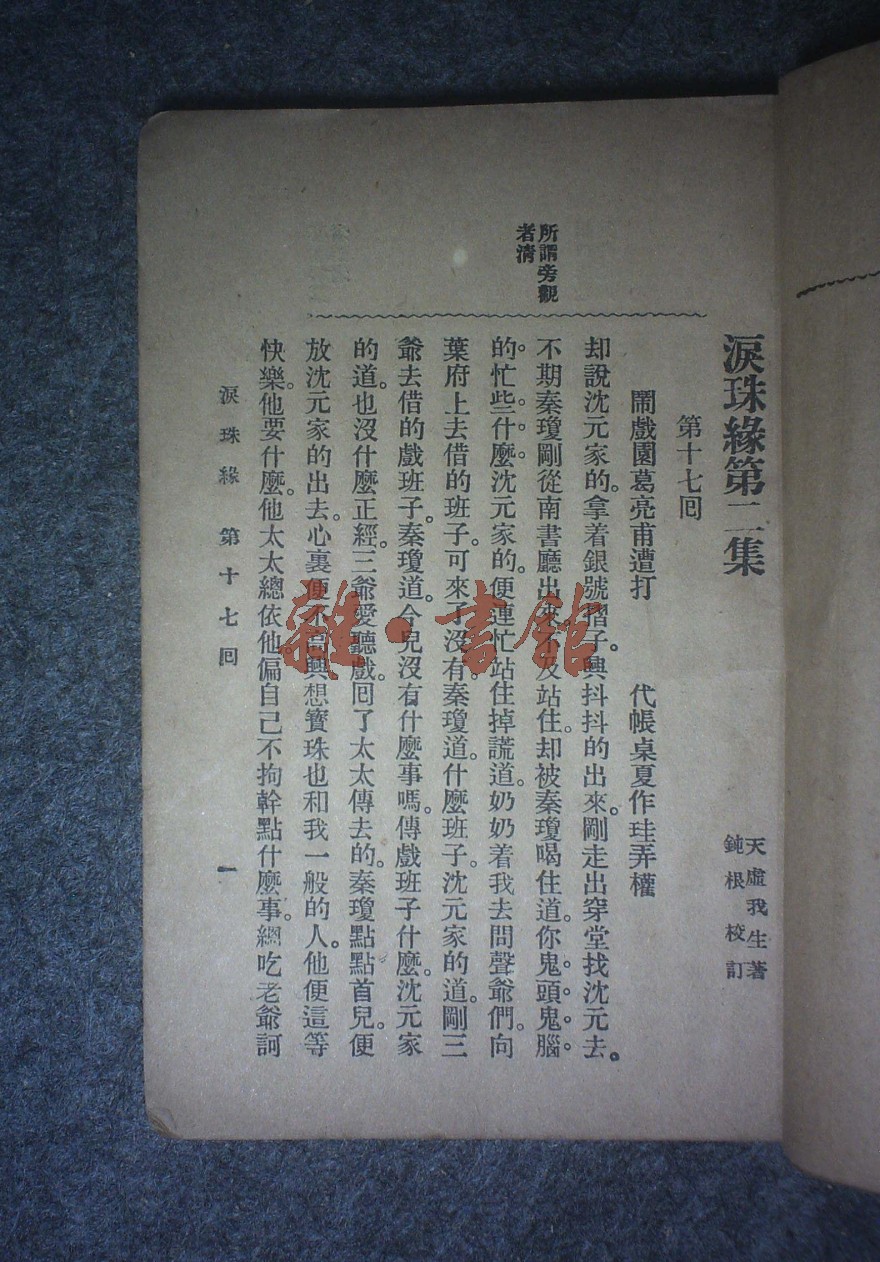 淚珠緣第二集
天虛我生著
鈍根校訂
第十七回
鬧戲園葛亮甫遭打　代帳桌夏作珪弄權
却說沈元家的。拿着銀號摺子。興抖抖的出來。剛走出穿堂找沈元去。
不期秦瓊剛從南書廳出來。不及站住。却被秦瓊喝住道。你鬼頭鬼腦
的。忙些什麼。沈元家的。便連忙站住掉謊道。奶奶着我去問聲爺們。向
葉府上去借的班子。可來了沒有。秦瓊道。什麼班子。沈元家的道。剛三
爺去借的戲班子。秦瓊道。今兒沒有什麼事嗎。傳戲班子什麼。沈元家
的道。也沒什麼正經。三爺愛聽戲。回了太太傳去的。秦瓊點點首兒。便
放沈元家的出去。心裏便不高興想寶珠也和我一般的人。他便這等
快樂。他要什麼。他太太總依他。偏自己不拘幹點什麼事。總吃老爺訶
所謂旁觀
者清
淚珠緣　第十七回　一
雜·書館